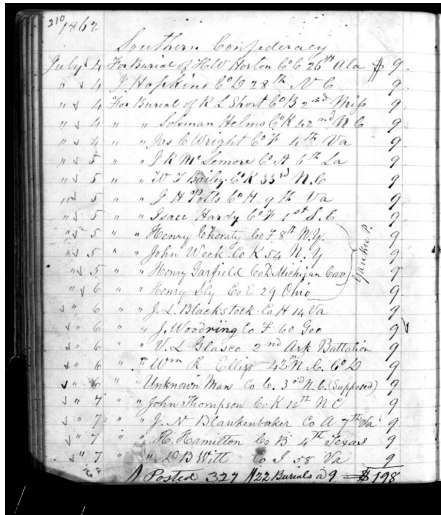 210
1862
Southern Confederacy
July 4 For Burial of H W Horton Co C 26th Ala $ 9.
" " 4 " J Hopkins Co D 28th N C. 9.
" " 4 For Burial of R L Short Co B 2nd Miss 9
" " 4 " " Soloman Helms Co K 42nd N C 9.
" " 4 " " Jas C Wright Co F 4th Va 9
" " 5 " " J R McLemore Co A 6th La 9
" " 5 " " W T Bailey Co K 33rd N.C 9.
" " 5 " " J H Potts Co H 9th Va 9
" " 5 " " Isaac Hardy Co F 1st S.C 9.
" " 5 " " Henry Co F 8th N.Y. 9
" " 5 " " John Week Co K 54 N.Y 9
" " 5 " " Henry Garfield Co Michigan Cav 9
" " 6 " " Henry Sly Co E 29 Ohio 9
Yankee P.
" " 6 " " J. L. Blackstock Co H 14 Va 9
" " 6 " " J. Woodring Co F 60 Geo 9
" " 6 " " V. L. Glasco 2nd Ark Battalion 9
" " 6 " " Wm R Ellis 42nd N.C. Co D 9
" " 6 " Unknown Man Co C. 3rd N.C. (Supposed) 9
" " 7 " " John Thompson Co K 10th N C 9
" " 7 " " J. N Blankenbaker Co A 7th Va 9
" " 7 " " H. Hamilton Co B 4th Texas 9
" " 7 " " D B Witt Co I 58 Va 9
Posted 327 22 Burials a 9 = $198